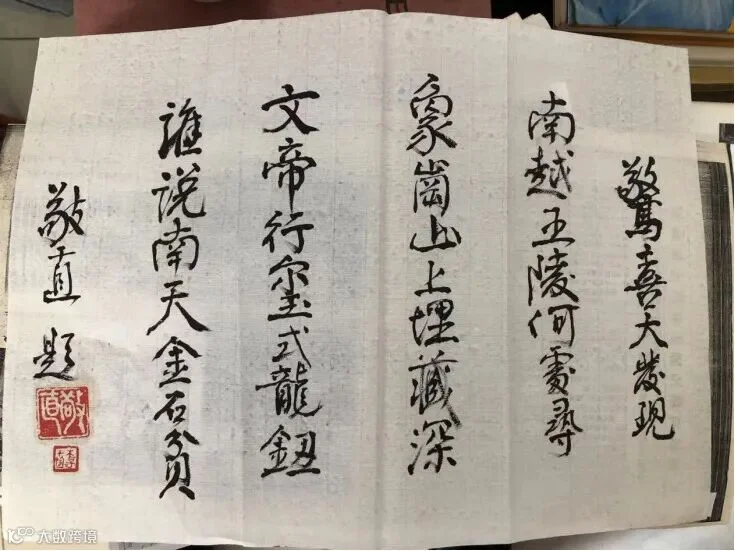 驚喜大發現
南越王陵何處尋
象崗山上埋藏深
文帝行玺式龍鈕
誰说南天金石貧
敬直 題
敬直
大数跨境